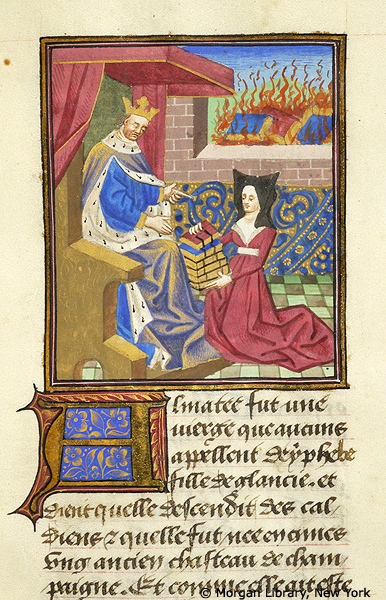 Almatee fut une
vierge que aucuns
appellent deyphebe
fille de glancie. et
dient quelle descendit des cal
diens & quelle fut nee en cumes
vng ancien chasteau de cham
paigne. Et comme elle ait este
© Morgan Library, New York